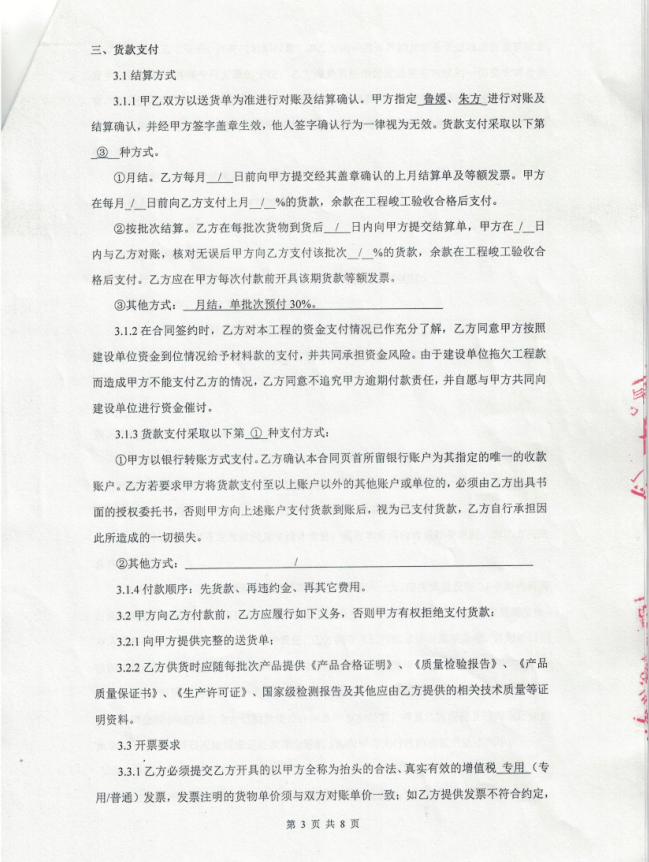 三、货款支付
3.1 结算方式
3.1.1 甲乙双方以送货单为准进行对账及结算确认。甲方指定 鲁媛、朱方 进行对账及
结算确认，并经甲方签字盖章生效，他人签字确认行为一律视为无效。货款支付采取以下第
③ 种方式。
①月结。乙方每月 / 日前向甲方提交经其盖章确认的上月结算单及等额发票。甲方
在每月 / 日前向乙方支付上月 / %的货款，余款在工程峻工验收合格后支付。
②按批次结算。乙方在每批次货物到货后 / 日内向甲方提交结算单，甲方在 / 日
内与乙方对账，核对无误后甲方向乙方支付该批次 / %的货款，余款在工程峻工验收合
格后支付。乙方应在甲方每次付款前开具该期货款等额发票。
③其他方式： 月结，单批次预付 30%。
3.1.2 在合同签约时，乙方对本工程的资金支付情况已作充分了解，乙方同意甲方按照
建设单位资金到位情况给予材料款的支付，并共同承担资金风险。由于建设单位拖欠工程款
而造成甲方不能支付乙方的情况，乙方同意不追究甲方逾期付款责任，并自愿与甲方共同向
建设单位进行资金催讨。
3.1.3 货款支付采取以下第 ① 种支付方式：
①甲方以银行转账方式支付。乙方确认本合同页首所留银行账户为其指定的唯一的收款
账户。乙方若要求甲方将货款支付至以上账户以外的其他账户或单位的，必须由乙方出具书
面的授权委托书，否则甲方向上述账户支付货款到账后，视为已支付货款，乙方自行承担因
此所造成的一切损失。
②其他方式： /
3.1.4 付款顺序：先货款、再违约金、再其它费用。
3.2 甲方向乙方付款前，乙方应履行如下义务，否则甲方有权拒绝支付货款：
3.2.1 向甲方提供完整的送货单；
3.2.2 乙方供货时应随每批次产品提供《产品合格证明》、《质量检验报告》、《产品
质量保证书》、《生产许可证》、国家级检测报告及其他应由乙方提供的相关技术质量等证
明资料。
3.3 开票要求
3.3.1 乙方必须提交乙方开具的以甲方全称为抬头的合法、真实有效的增值税 专用（专
用/普通）发票，发票注明的货物单价须与双方对账单价一致；如乙方提供发票不符合约定，
第 3 页 共 8 页